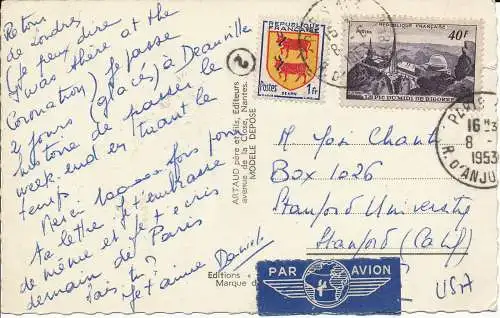 Retour
de Londres,
(je peux dire
I was there at the
Coronation) je passe
2 jours (glacés) à Deauville
histoire de passer le
week-end en tuant le
temps.
Merci 1000 fois pour
ta lettre je t'embrasse
de même et je t'écris
demain de Paris
sais tu?
Je t'aime Daniel
ARTAUD père et fils, Editeurs
avenue de la Close, Nantes.
MODÈLE DÉPOSÉ
Editions
Marque d
REPUBLIQUE FRANÇAISE
Postes
BEARN
1fr
2
REPUBLIQUE FRANÇAISE
POSTES
40F
LE PIC DU MIDI DE BIGORRE
PARIS
16
8
1953
R. D'ANJOU
M Jon Chante
Box 1026
Stanford University
Stanford (Calif)
USA
PAR AVION